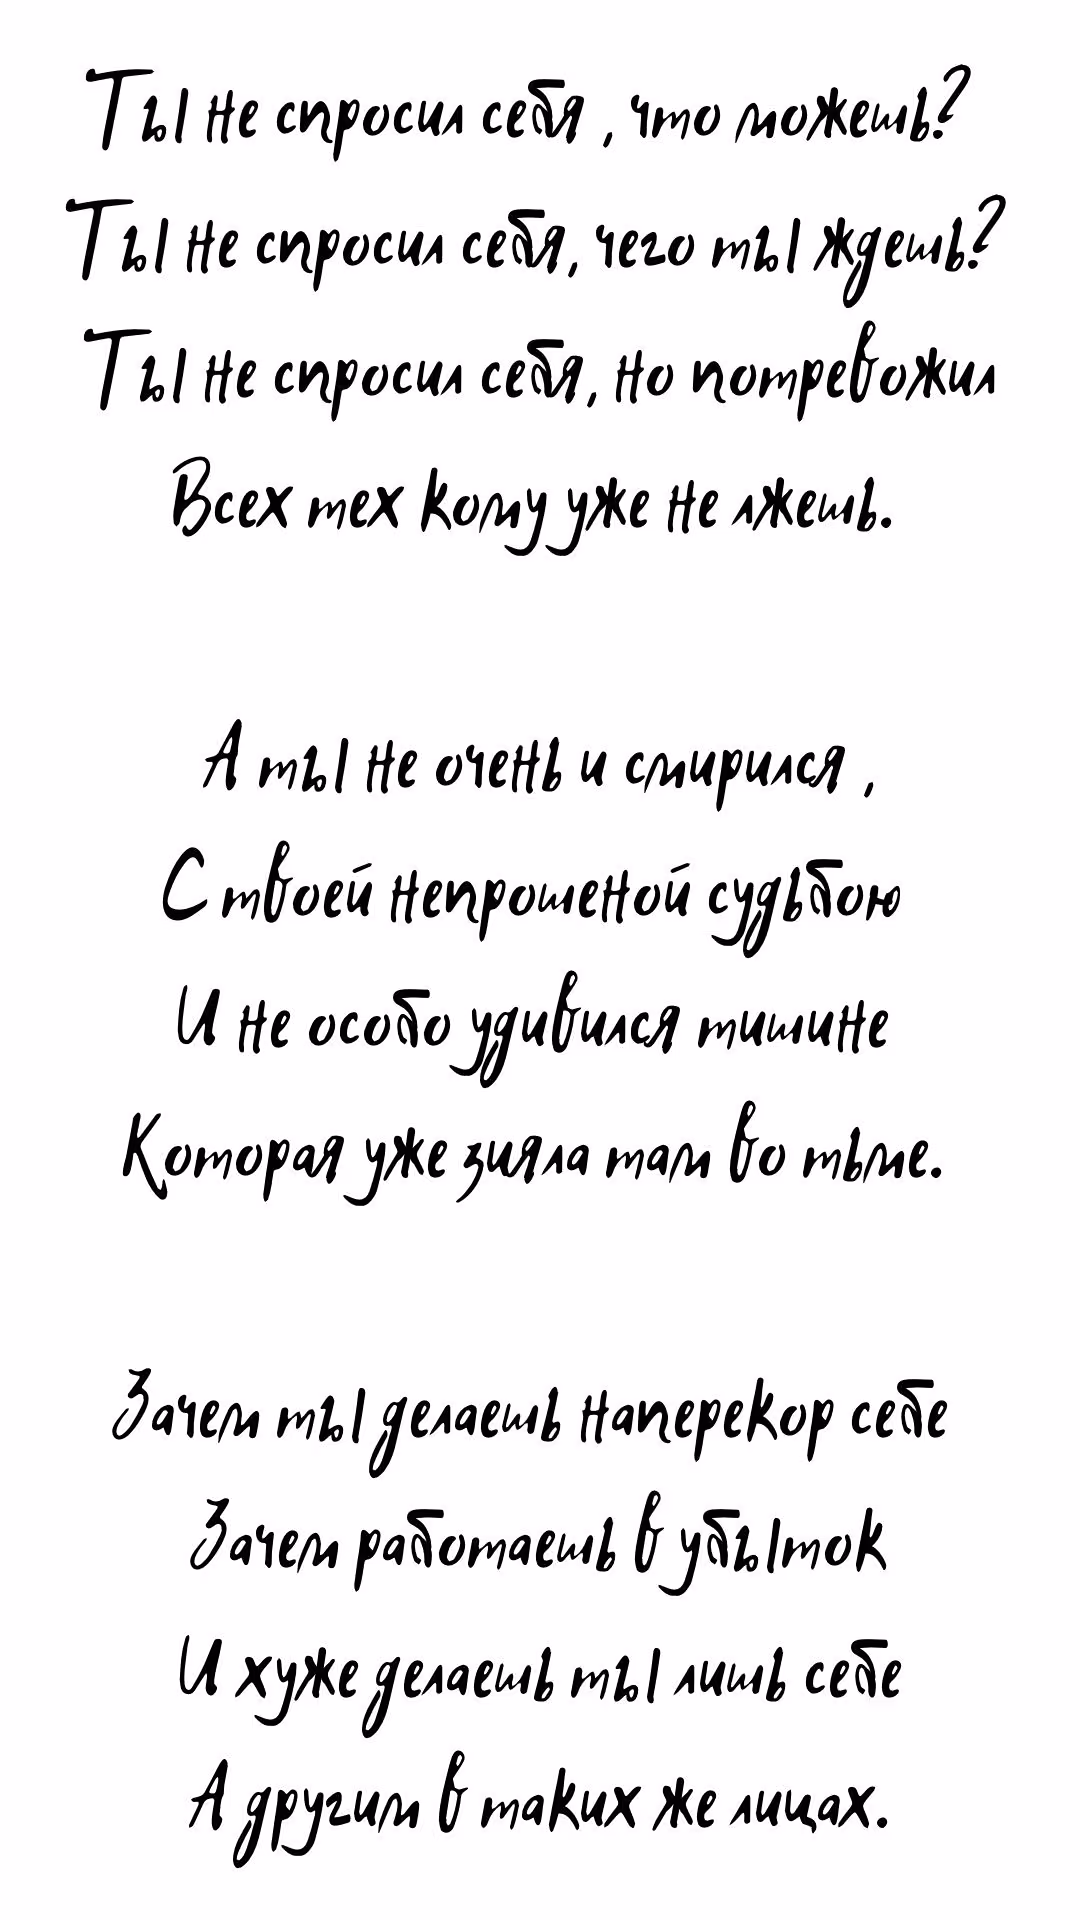 Ты не спросил себя , что можешь?
Ты не спросил себя, чего ты ждешь?
Ты не спросил себя, но потревожил
Всех тех кому уже не лжешь.
А ты не очень и смирился ,
С твоей непрошеной судьбою
И не особо удивился тишине
Которая уже зияла там во тьме.
Зачем ты делаешь наперекор себе
Зачем работаешь в убыток
И хуже делаешь ты лишь себе
А другим в таких же лицах.